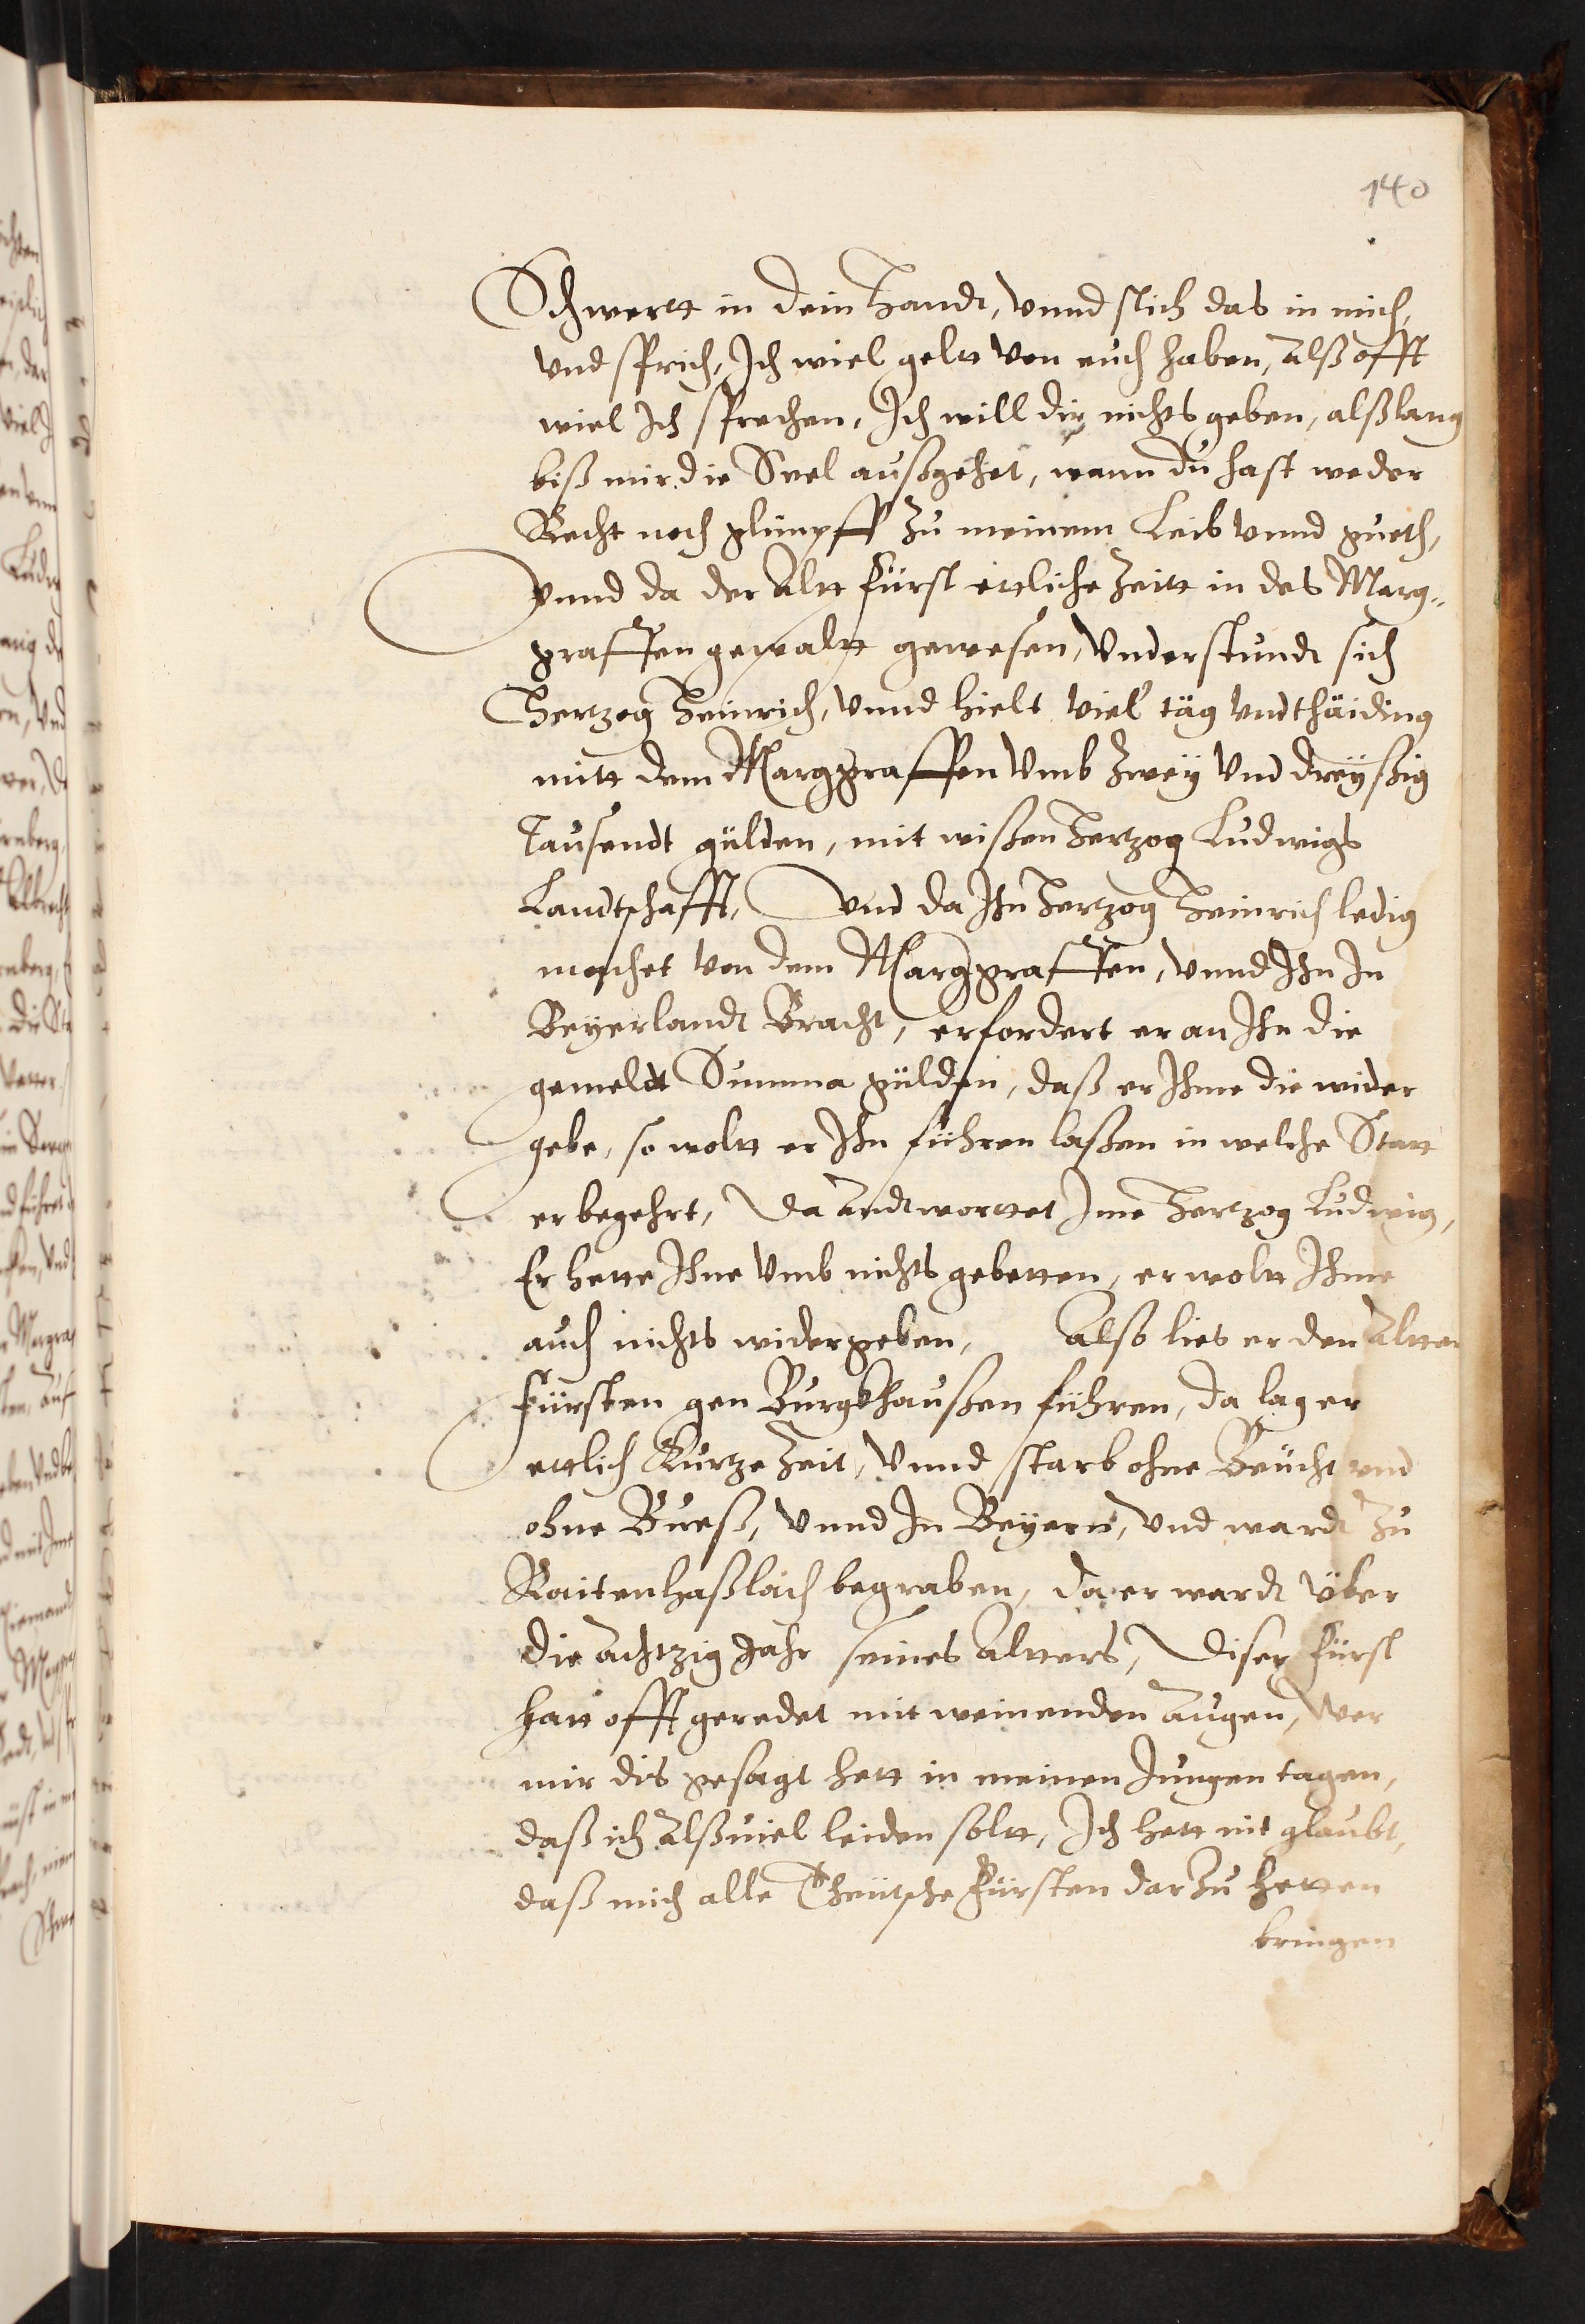 140
Schwertt in dein Handt, vnnd stich das in mich,
vnd sprich, Ich wiel geltt von euch haben, Alß offt
wiel Ich sprechen, Ich will dir nichts geben, alßlang
biß mir die Seel außgehet, wann du hast weder
Recht noch glimpff zu meinem Leib vnnd gueth,
Vnnd da der Altt Fürst ettliche Zeitt in des Marg„
graffen gewaltt gewesen, Vnderstundt sich
Hertzog Heinrich, vnnd hielt viel täg vndthäiding
mitt dem Marggraffen vmb Zwey vnd dreyßig
Tausendt gülden, mit wißen Hertzog Ludwigs
Landtschafft, Vnd da Ihn Hertzog Heinrich ledig
machet von dem Marggraffen, vnnd Ihn In
Beyerlandt Bracht, erfordert er an Ihn die
gemeldt Summa gülden, daß er Ihme die wider
gebe, so woltt er Ihn führen laßen in welche Statt
er begehrt, Da Andtworttet Ime Hertzog Ludwig,
Er hette Ihne vmb nichts gebetten, er woltt Ihme
auch nichts widergeben, Also lies er den Altten
Fürsten gen Burgkhaußen führen, da lag er
ettlich Kurtze Zeit, vnnd starb ohne Beücht vnd
ohne Bueß, vnnd In Beyern, vnd wardt zu
Raitenhaßlach begraben, da er wardt über
die Achtzig Jahr seines Altters, Diser Fürst
hatt offt geredet mit weinenden Augen, Wer
mir dis gesagt hett in meinen Jungen tagen,
daß ich Alßuiel leiden soltt, Ich hett nit glaubt,
daß mich alle Theütsche Fürsten darzu hetten
bringen